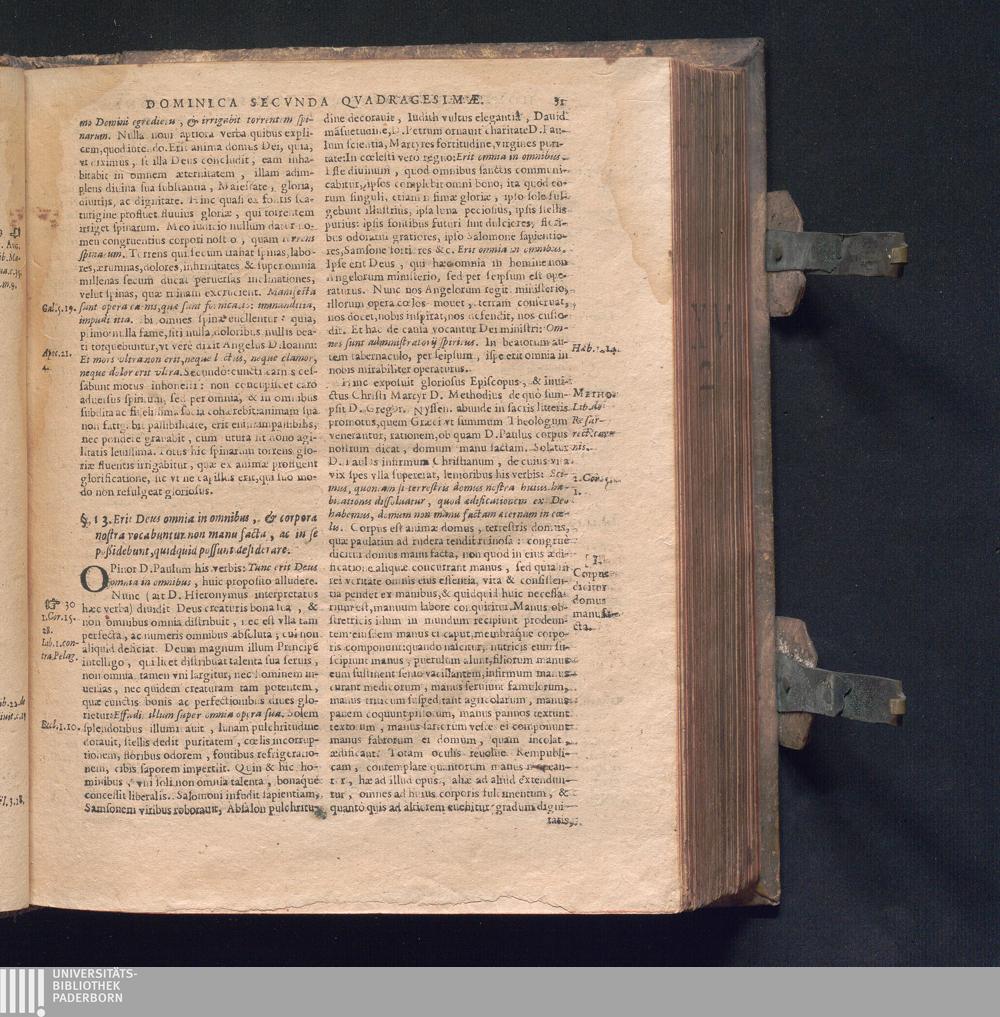 DOMINICA SECVNDA QVADRAGESIMÆ. 31
mo Domini egredietu , & irrigabit torrentem spi-
narum. Nulla noui aptiora verba quibus expli-
cem, quod intendo. Erit anima domus Dei, quia,
vt diximus , si illa Deus concludit , eam inha-
bitabit in omnem æternitatem , illam adim-
plens diuina sua substantia , Maiestate , gloria,
diuitijs, ac dignitate. Hinc quasi ex fontis sca-
turigine profluet fluuius gloriæ , qui torrentem
irriget spinarum. Meo iudicio nullum datur no-
men congruentius corpori nostro , quam torrens
spinarum. Torrens qui secum trahat spinas, labo-
res, ærumnas, dolores, infirmitates & super omnia
millenas secum ducat peruersas inclinationes,
velut spinas, quæ animam excrucient. Manifesta
sunt opera carnis, quæ sunt fornicatio: immunditia,
impudicitia. Ibi omnes spinæ euellentur : quia,
primo nulla fame, siti nulla, doloribus nullis bea-
ti torquebuntur, vt vere dixit Angelus D. Ioanni:
Et mors vltra non erit, neque luctus, neque clamor,
neque dolor erit vltra. Secundo: cuncti carnis ces-
sabunt motus inhonesti : non concupiscet caro
aduersus spiritum, sed per omnia, & in omnibus
subdita ac fidelissima socia cohærebit: animam sua
non fatigabit passibilitate, erit enim impassibilis,
nec pondere grauabit , cum futura sit dono agi-
litatis leuissima. Totus hic spinarum torrens glo-
riæ fluentis irrigabitur , quæ ex animæ profluent
glorificatione, sic vt ne capillus erit, qui suo mo-
do non refulgeat gloriosus.
§. 13. Erit Deus omnia in omnibus , & corpora
nostra vocabuntur non manu facta , ac in se
possidebunt, quidquid possunt desiderare.
OPinor D. Paulum his verbis: Tunc erit Deus
omnia in omnibus , huic proposito alludere.
Nunc (ait D. Hieronymus interpretatus
hæc verba) diuidit Deus creaturis bona sua , &
non omnibus omnia distribuit , nec est vlla tam
perfecta, ac numeris omnibus absoluta , cui non
aliquid deficiat. Deum magnum illum Principē
intelligo , qui licet distribuat talenta sua seruis ,
non omnia tamen vni largitur, nec hominem in-
uenias , nec quidem creaturam tam potentem ,
quæ cunctis bonis ac perfectionibus diues glo-
rietur: Effudit illum super omnia opera sua. Solem
splendoribus illuminauit , lunam pulchritudine
dotauit, stellis dedit puritatem , cœlis incorrup-
tionem, floribus odorem , fontibus refrigeratio-
nem, cibis saporem impertiit. Quin & hic ho-
minibus , vni soli non omnia talenta , bonaque
concessit liberalis. Salomoni infudit sapientiam,
Samsonem viribus roborauit, Absalon pulchritu-
Gal. 5. 19.
Apoc. 21.
4.
30
1. Cor. 15.
28.
Lib. 1. con-
tra Pelag.
Eccl. 1. 10.
dine decorauit , Iudith vultus elegantia , Dauid
māsuetudine, D. Petrum ornauit charitate D. Pau-
lum scientia, Martyres fortitudine, virgines puri-
tate: In cœlesti vero regno: Erit omnia in omnibus.
Esse diuinum , quod omnibus sanctis communi-
cabitur, ipsos complebit omni bono, ita quod eo-
rum singuli, etiam infimæ gloriæ , ipso sole ful-
gebunt illustrius, ipsa luna speciosius, ipsis stellis
purius: ipsis fontibus futuri sint dulciores, flori-
bus odoratu gratiores, ipso Salomone sapientio-
res, Samsone fortiores &c. Erit omnia in omnibus.
Ipse erit Deus , qui hæc omnia in homine non
Angelorum ministerio, sed per seipsum est ope-
raturus. Nunc nos Angelorum regit ministerio,
illorum opera cœlos mouet , terram conseruat,
nos docet, nobis inspirat, nos defendit, nos custo-
dit. Et hac de causa vocantur Dei ministri: Om-
nes sunt administratorij spiritus. In beatorum au-
tem tabernaculo, per seipsum , ipse erit omnia in
nobis mirabiliter operaturus.
Hinc exposuit gloriosus Episcopus , & inui-
ctus Christi Martyr D. Methodius de quo sum-
psit D. Gregor. Nyssen. abunde in sacris litteris
promotus, quem Græci vt summum Theologum
venerantur, rationem, ob quam D. Paulus corpus
nostrum dicat , domum manu factam. Solatur
D. Paulus infirmum Christianum , de cuius vita
vix spes vlla supererat, lenioribus his verbis: Sci-
mus, quoniam si terrestris domus nostra huius ha-
bitationis dissoluatur , quod ædificationem ex Deo
habemus, domum non manu factam æternam in cœ-
lis. Corpus est animæ domus , terrestris domus,
quæ paulatim ad rudera tendit ruinosa : congruè
dicitur domus manu facta, non quod in eius ædi-
ficatione aliquæ concurrant manus , sed quia in
rei veritate omnis eius essentia, vita & consisten-
tia pendet ex manibus, & quidquid huic necessa-
rium est, manuum labore conquiritur. Manus ob-
stetricis illum in mundum recipiunt prodeun-
tem: eiusdem manus ei caput, membraque corpo-
ris componunt: quando nascitur, nutricis eum su-
scipiunt manus , puerulum alunt, filiorum manus
eum sustinent senio vacillantem, infirmum manus
curant medicorum , manus seruiunt famulorum,
manus triticum suspeditant agricolarum , manus
panem coquunt pistorum, manus pannos texunt
textorum , manus sartorum vestes ei componunt
manus fabrorum ei domum , quam incolat ,
ædificant. Totam oculis reuolue Rempubli-
cam , contemplare quantorum manus
hæ ad illud opus , aliæ ad aliud extendun-
tur , omnes ad huius corporis fulcimentum , &
quantò quis ad altiorem euehitur gradum digni-
tatis,
Heb. 1. 14.
METHO-
Lib. de
Resur-
rectione
nis.
2. Cor. 5.
1.
Corpus
dicitur
domus
manu fa-
cta.
UNIVERSITÄTS-
BIBLIOTHEK
PADERBORN